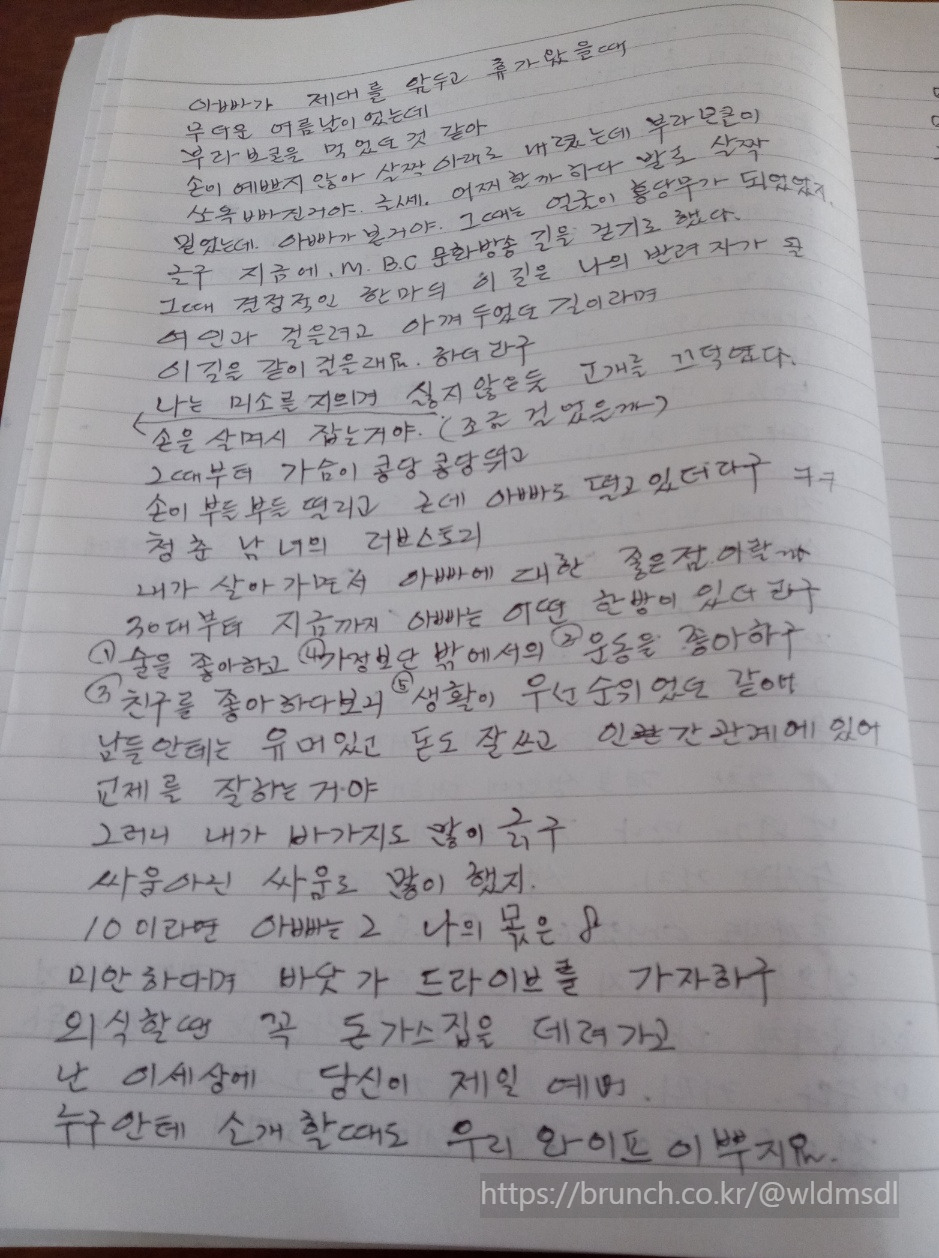 아빠가 제대를 앞두고 휴가왔을때
무더운 여름날이었는데
부라보콘을 먹었던것 같아
손이 예쁘지 않아 살짝 아래로 내렸는데 부라보콘이
쏘옥 빠진거야. 글쎄. 어찌할까 하다 발로 살짝
밀었는데. 아빠가 본거야. 그때는 얼굴이 홍당무가 되었었지.
글구 지금에, M.B.C 문화방송 길을 걷기로 했다.
그때 결정적인 한마듸 이 길은 나의 반려자가 될
여인과 걸을려고 아껴두었던 길이라며
이길을 같이 걸을래요. 하더라구
나는 미소를 지의며 싫지 않은듯 고개를 끄덕였다.
손을 살며시 잡는거야. (조금 걸었을까)
그때부터 가슴이 콩당콩당 뛰고
손이 부들부들 떨리고 근데 아빠도 떨고있더라구 ㅋㅋ
청춘 남녀의 러브스토리
내가 살아가면서 아빠에 대한 좋은점이랄까
30대부터 지금까지 아빠는 어떤 한방이 있더라구
① 술을 좋아하고 ④가정보단 밖에서의 ② 운동을 좋아하구
③ 친구를 좋아하다보니 ⑤ 생활이 우선순위었던 같애
남들안테는 유머있고 돈도 잘쓰고 인간관계에 있어
교제를 잘하는거야
그러니 내가 바가지도 많이 긁구
싸움아닌 싸움도 많이 했지.
10이라면 아빠는 2 나의 몫은 8
미안하다며 바닷가 드라이브를 가자하구
외식할땐 꼭 돈가스집을 데려가고
난 이세상에 당신이 제일 예뻐.
누구안테 소개할때도 우리 와이프 이쁘지요.
https://brunch.co.kr/@wldmsdl